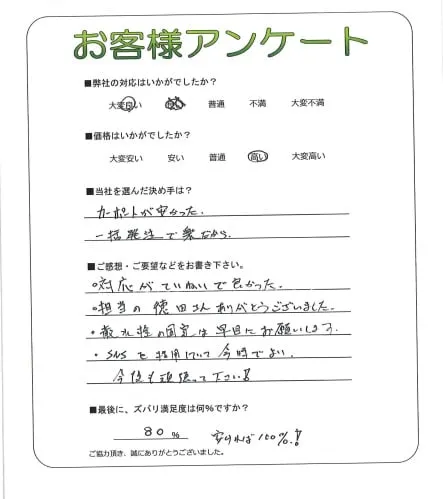 お客様アンケート
■弊社の対応はいかがでしたか？
大変良い 良い 普通 不満 大変不満
■価格はいかがでしたか？
大変安い 安い 普通 高い 大変高い
■当社を選んだ決め手は？
カーポートが安かった.
一括発注で楽だから.
■ご感想・ご要望などをお書き下さい。
・対応がていねいで良かった.
・担当の徳田さんありがとうございました.
・散水栓の固定は早目にお願いします.
・SNSを活用していて今時でよい.
今後も頑張って下さい!!
■最後に、ズバリ満足度は何%ですか？
80 % 安ければ100%!!
ご協力頂き、誠にありがとうございました。